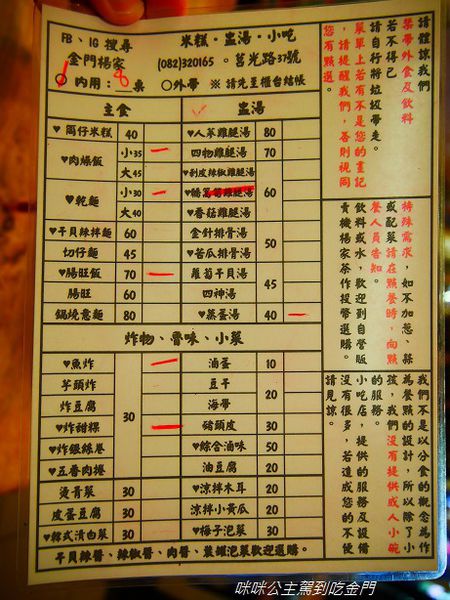 FB、IG 搜尋
金門楊家
米糕・盅湯・小吃
(082)320165 。莒光路37號
內用：8 桌
○外帶 ※ 請先至櫃台結帳
主食
盅湯
♥筒仔米糕 40
♥肉燥飯 小35
大45
♥乾麵 小30
大40
♥干貝辣拌麵 60
切仔麵 45
♥腸旺飯 70
腸旺 60
鍋燒意麵 80
♥人蔘雞腿湯 80
四物雞腿湯 70
♥剝皮辣椒雞腿湯
雞腿湯 60
♥香菇雞腿湯
金針排骨湯
♥苦瓜排骨湯 50
蘿蔔干貝湯
四神湯 45
♥蒸蛋湯 40
炸物、魯味、小菜
♥魚炸
芋頭炸
炸豆腐
♥炸甜粿
♥炸銀絲卷
♥五香肉捲
30
燙青菜 30
皮蛋豆腐 30
♥韓式漬白菜 30
滷蛋 10
豆干
海帶
20
豬頭皮 30
♥綜合滷味 50
油豆腐 20
♥涼拌木耳 20
涼拌小黃瓜 20
♥梅子泡菜 30
干貝辣醬、辣椒醬、肉醬、菜罐泡菜歡迎選購。
請體諒我們
禁帶外食及飲料
若不得已
請自行將垃圾帶走。
菜單上若有不是您的畫記
，請提醒我們，否則視同
您有點選。
特殊需求，如不加蔥、蒜
或配菜請在點餐時，向點
餐人員告知。
飲料或水，歡迎到自營販
賣機楊家茶作投幣選購。
我們不是以分食的觀念為作
為餐點的設計，所以除了小
孩，我們沒有提供成人小碗
的服務。
小吃店，提供的服務及設備
沒有很多，若造成您的不便
請見諒。
咪咪公主駕到吃金門